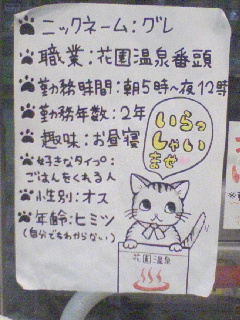 ニックネーム:グレ
職業:花園温泉番頭
勤務時間:朝5時~夜12時
勤務年数:2年
趣味:お昼寝
好きなタイプ:
ごはんをくれる人
性別:オス
年齢:ヒミツ
(自分でもわからない)
いらっ
しゃい
ませ
花園温泉